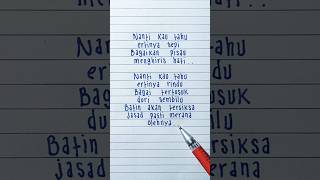 Nanti kau tahu
ertinya sepi
Bagaikan pisau
menghiris hati..
Nanti kau tahu
ertinya rindu
Bagai tertusuk
duri sembilu
Batin akan tersiksa
jasad pasti merana
olehnya..